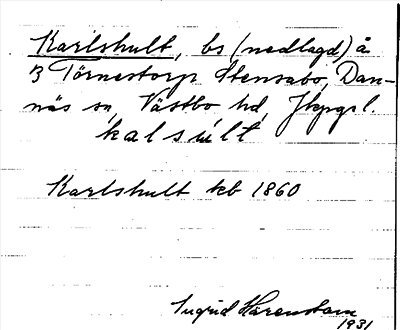 Karlshult, bs (nedlagd) å
B Törnestorp Stensabo, Dan-
näs sn, Västbo hd, Jkpgs l.
kalsúlt
Karlshult kb 1860
Ingrid Härenstam
1931